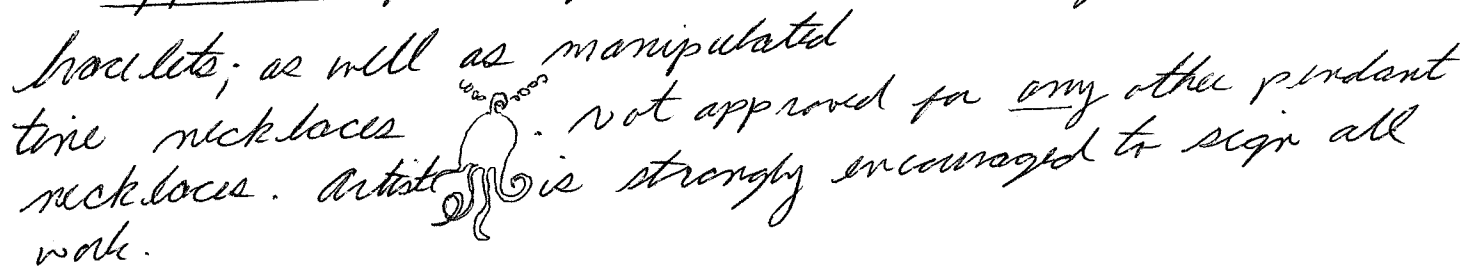 bracelets; as well as manipulated
tine necklaces . Not approved for any other pendant
necklaces. Artist is strongly encouraged to sign all
work.